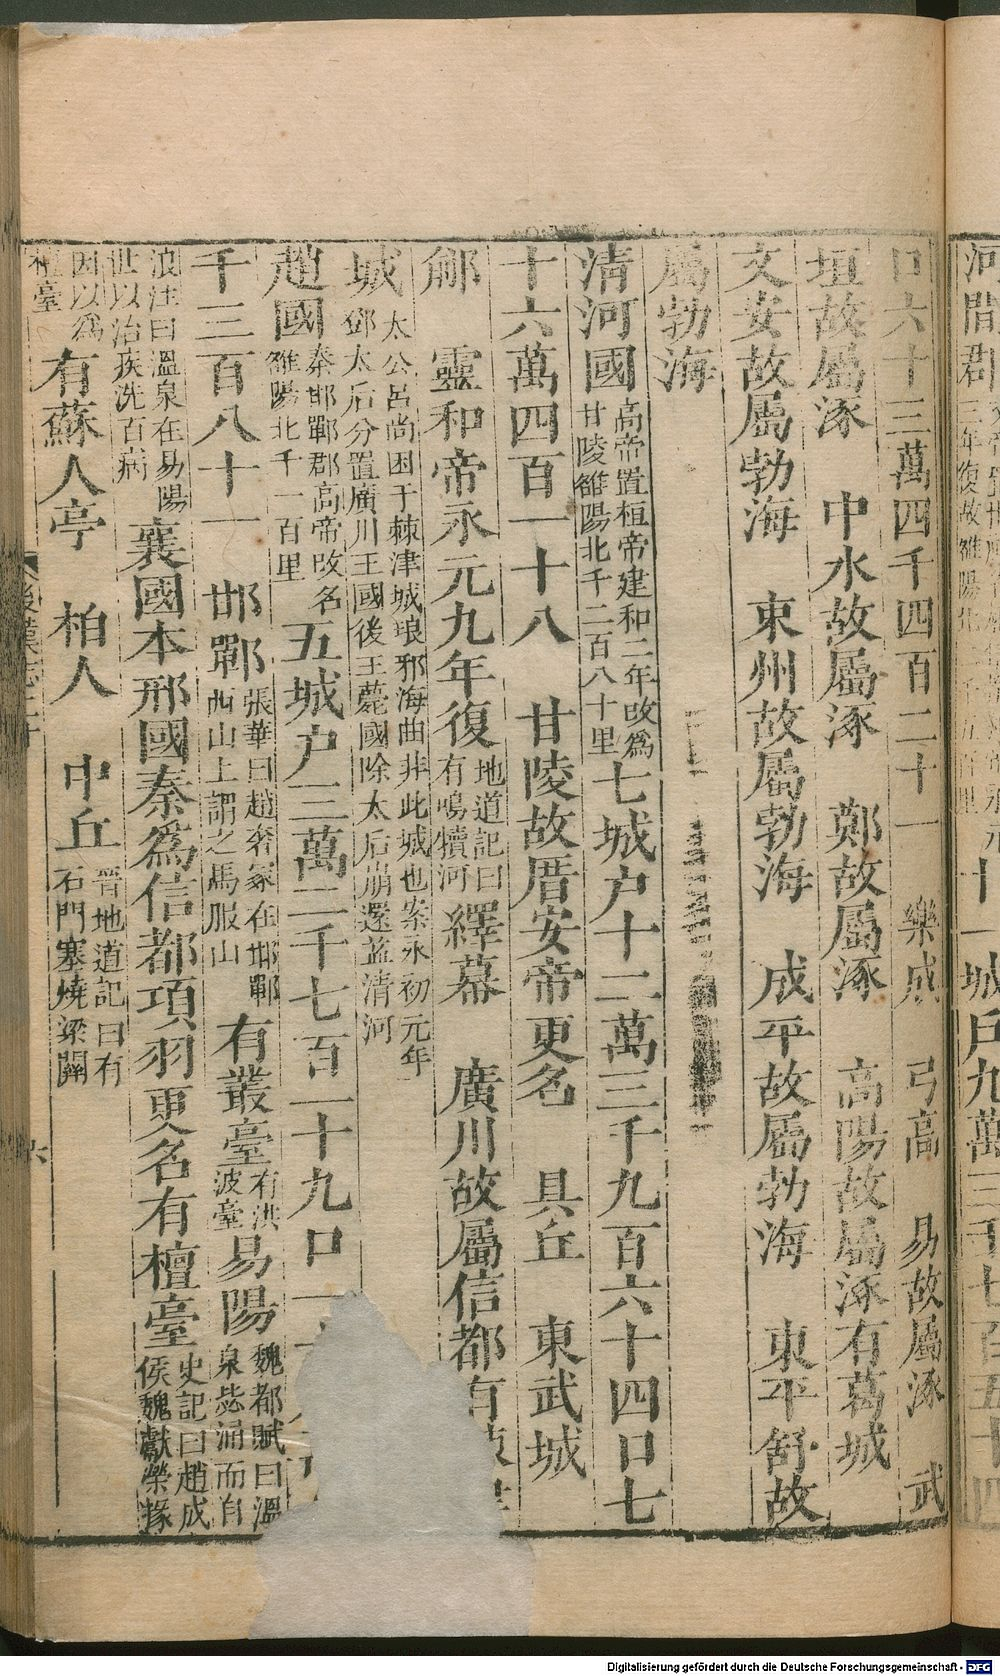 口六十三萬四千四百二十一 樂成 弓高 易故屬涿 武
垣故屬涿 中水故屬涿 鄚故屬涿 高陽故屬涿有葛城
文安故屬勃海 東州故屬勃海 成平故屬勃海 東平舒故
屬勃海
清河國高帝置桓帝建和二年改爲甘陵雒陽北千二百八十里七城户十二萬三千九百六十四口七
十六萬四百一十八 甘陵故厝安帝更名 具丘 東武城
鄃 靈和帝永元九年復地道記曰有鳴犢河繹幕 廣川故屬信都有
城太公呂尚困于棘津城琅邪海曲非此城也案永初元年鄧太后分置廣川王國後王薨國除太后崩還益清河
趙國秦邯鄲郡高帝改名雒陽北千一百里五城户三萬二千七百一十九口一
千三百八十一 邯鄲張華曰趙奢冢在邯鄲西山上謂之馬服山有叢臺有洪波臺易陽魏都賦曰溫泉毖涌而自
浪注曰溫泉在易陽世以治疾洗百病襄國本邢國秦爲信都項羽更名有檀臺史記曰趙成侯魏獻榮椽
因以爲檀臺有蘇人亭 柏人 中丘晉地道記曰有石門塞燒梁關
河間郡
十一城戶九萬三千七百五十四
Digitalisierung gefördert durch die Deutsche Forschungsgemeinschaft - DFG